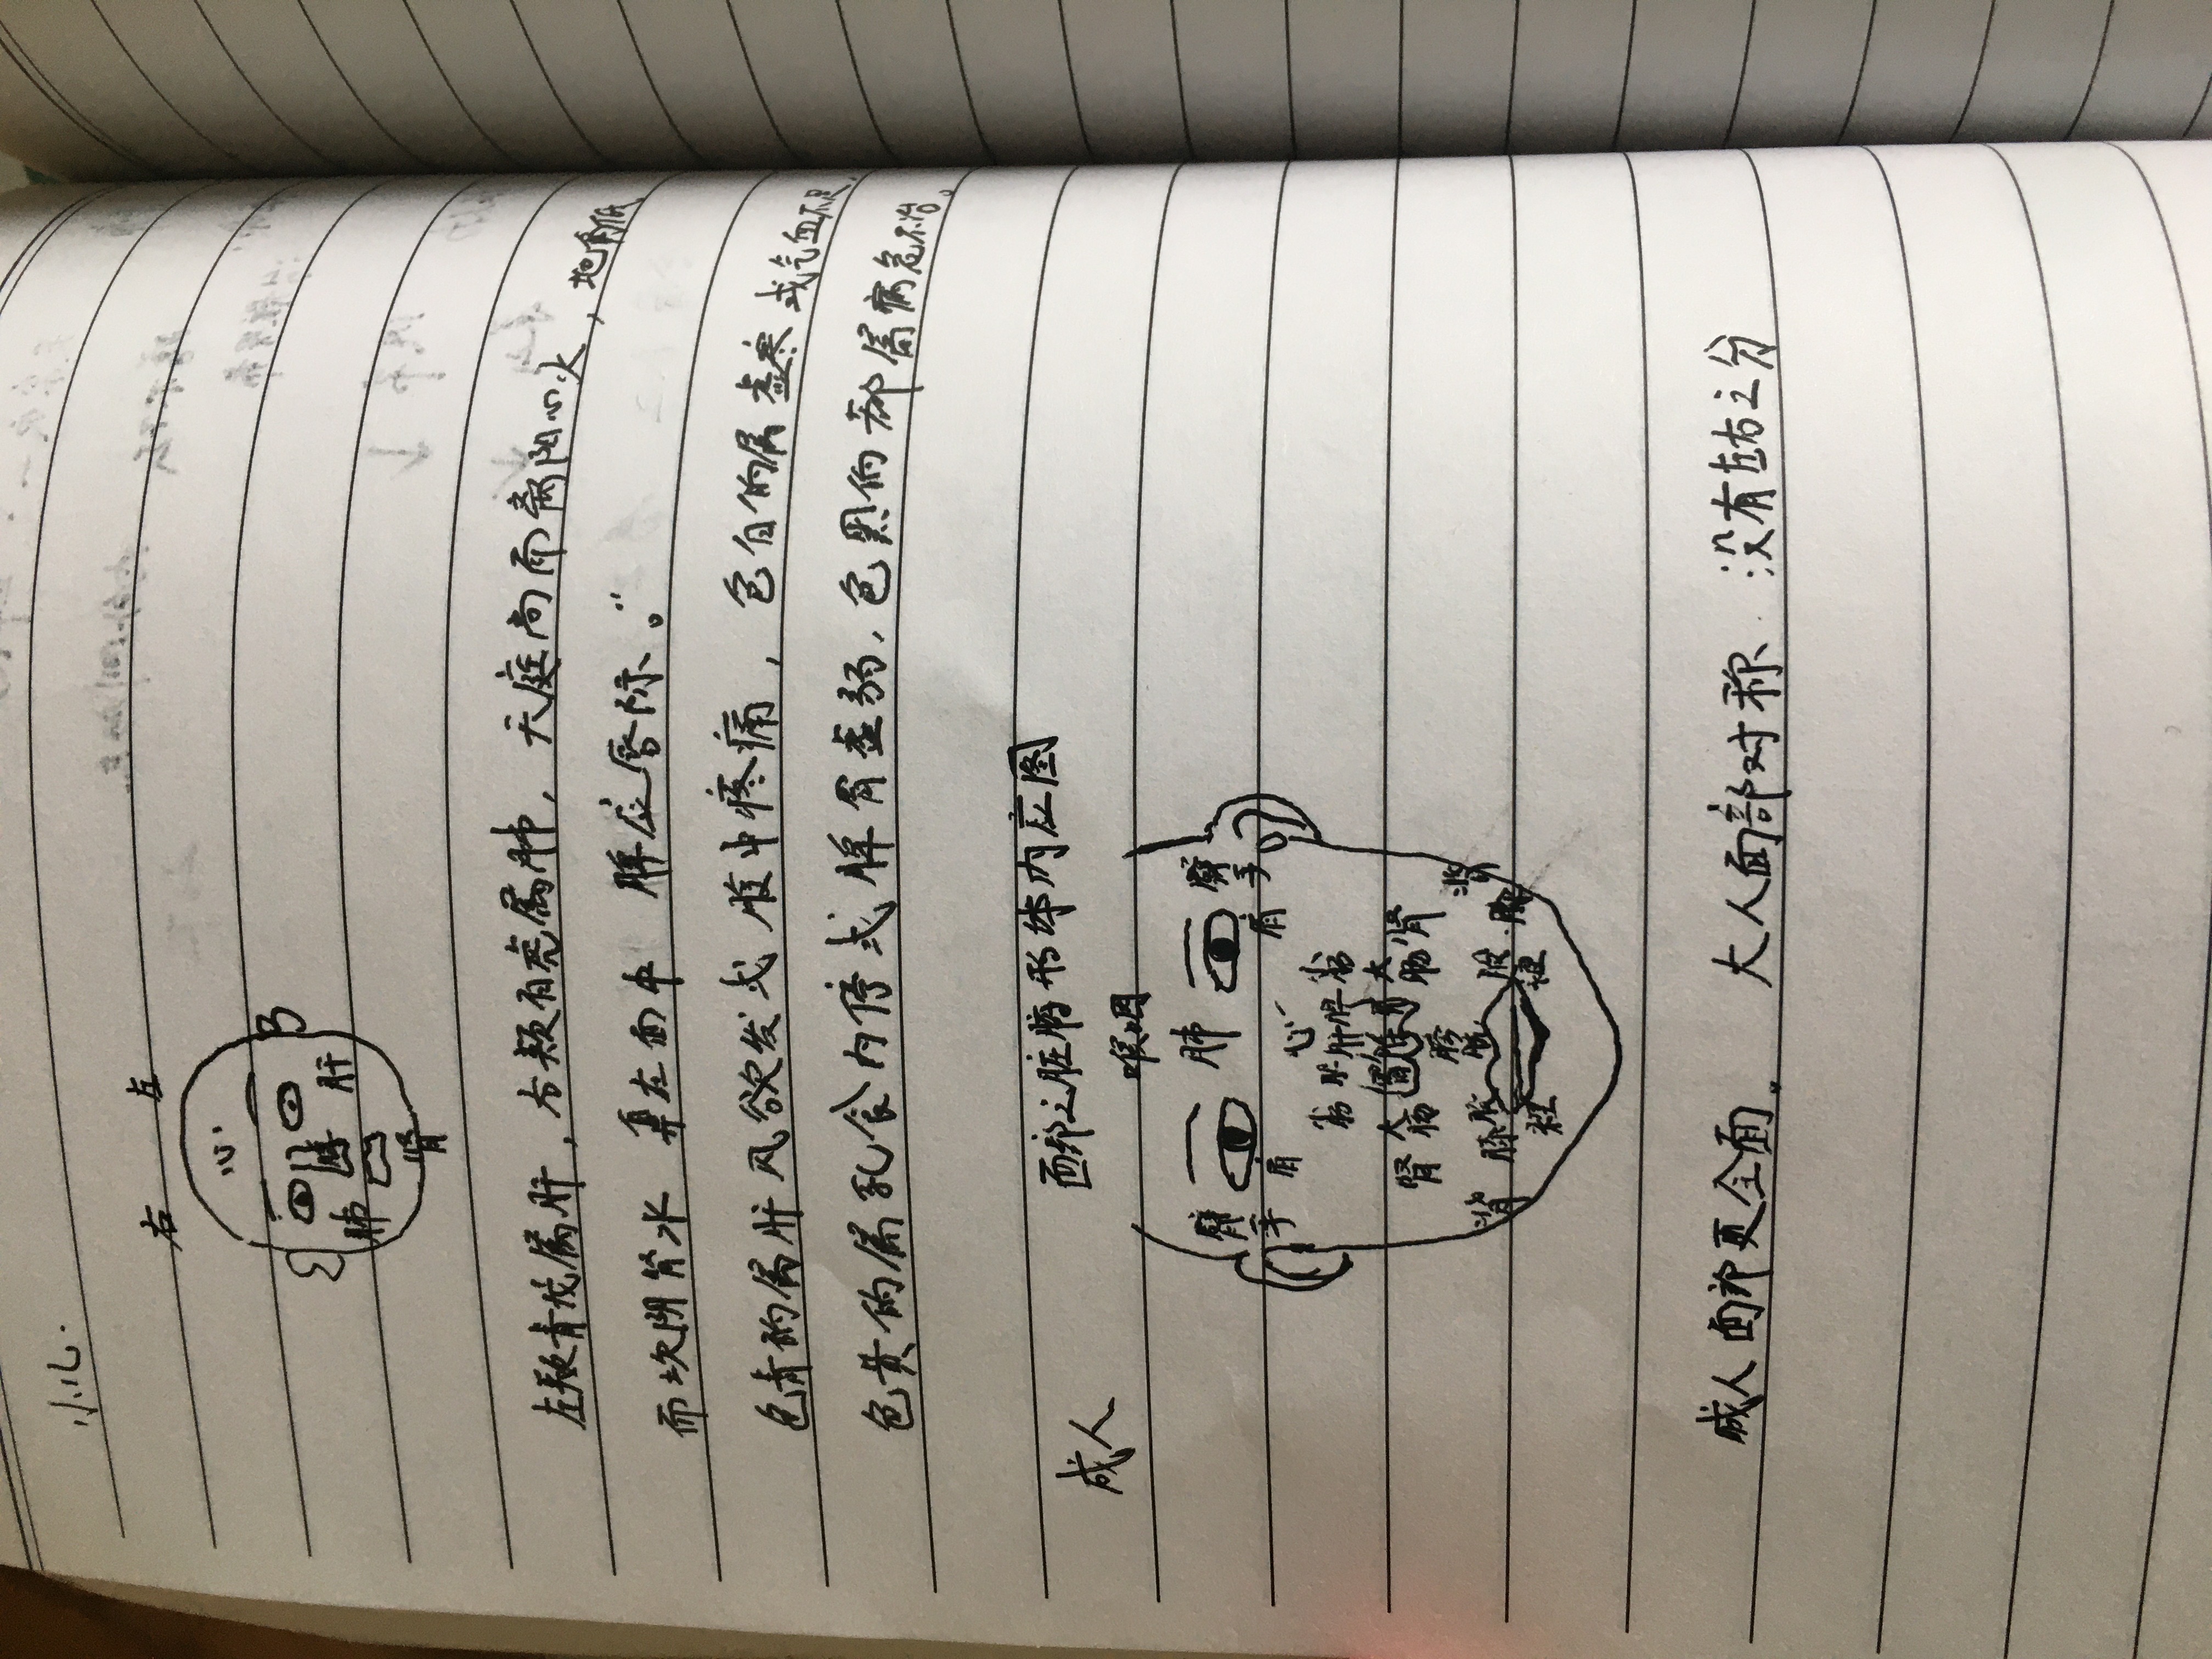 小儿.
右 左
心
肺 脾 肝
肾
左颊青龙属肝，右颊白虎属肺，天庭高而离阳心火，地角低
而坎阴肾水 鼻在面中 脾应唇际。”
色青的属肝风欲发或腹中疼痛，色白的属虚寒或气血不足，
色黄的属乳食内停或脾胃虚弱，色黑的都属病危不治。
面部之脏腑形体内应图
成人
咽喉
臂 肺 臂
手 手
肩 肩
心
胆 肝 脾 胃
肾 大肠 大肠 肾
膀胱
背 背
成人面部更全面. 大人面部对称 没有左右之分